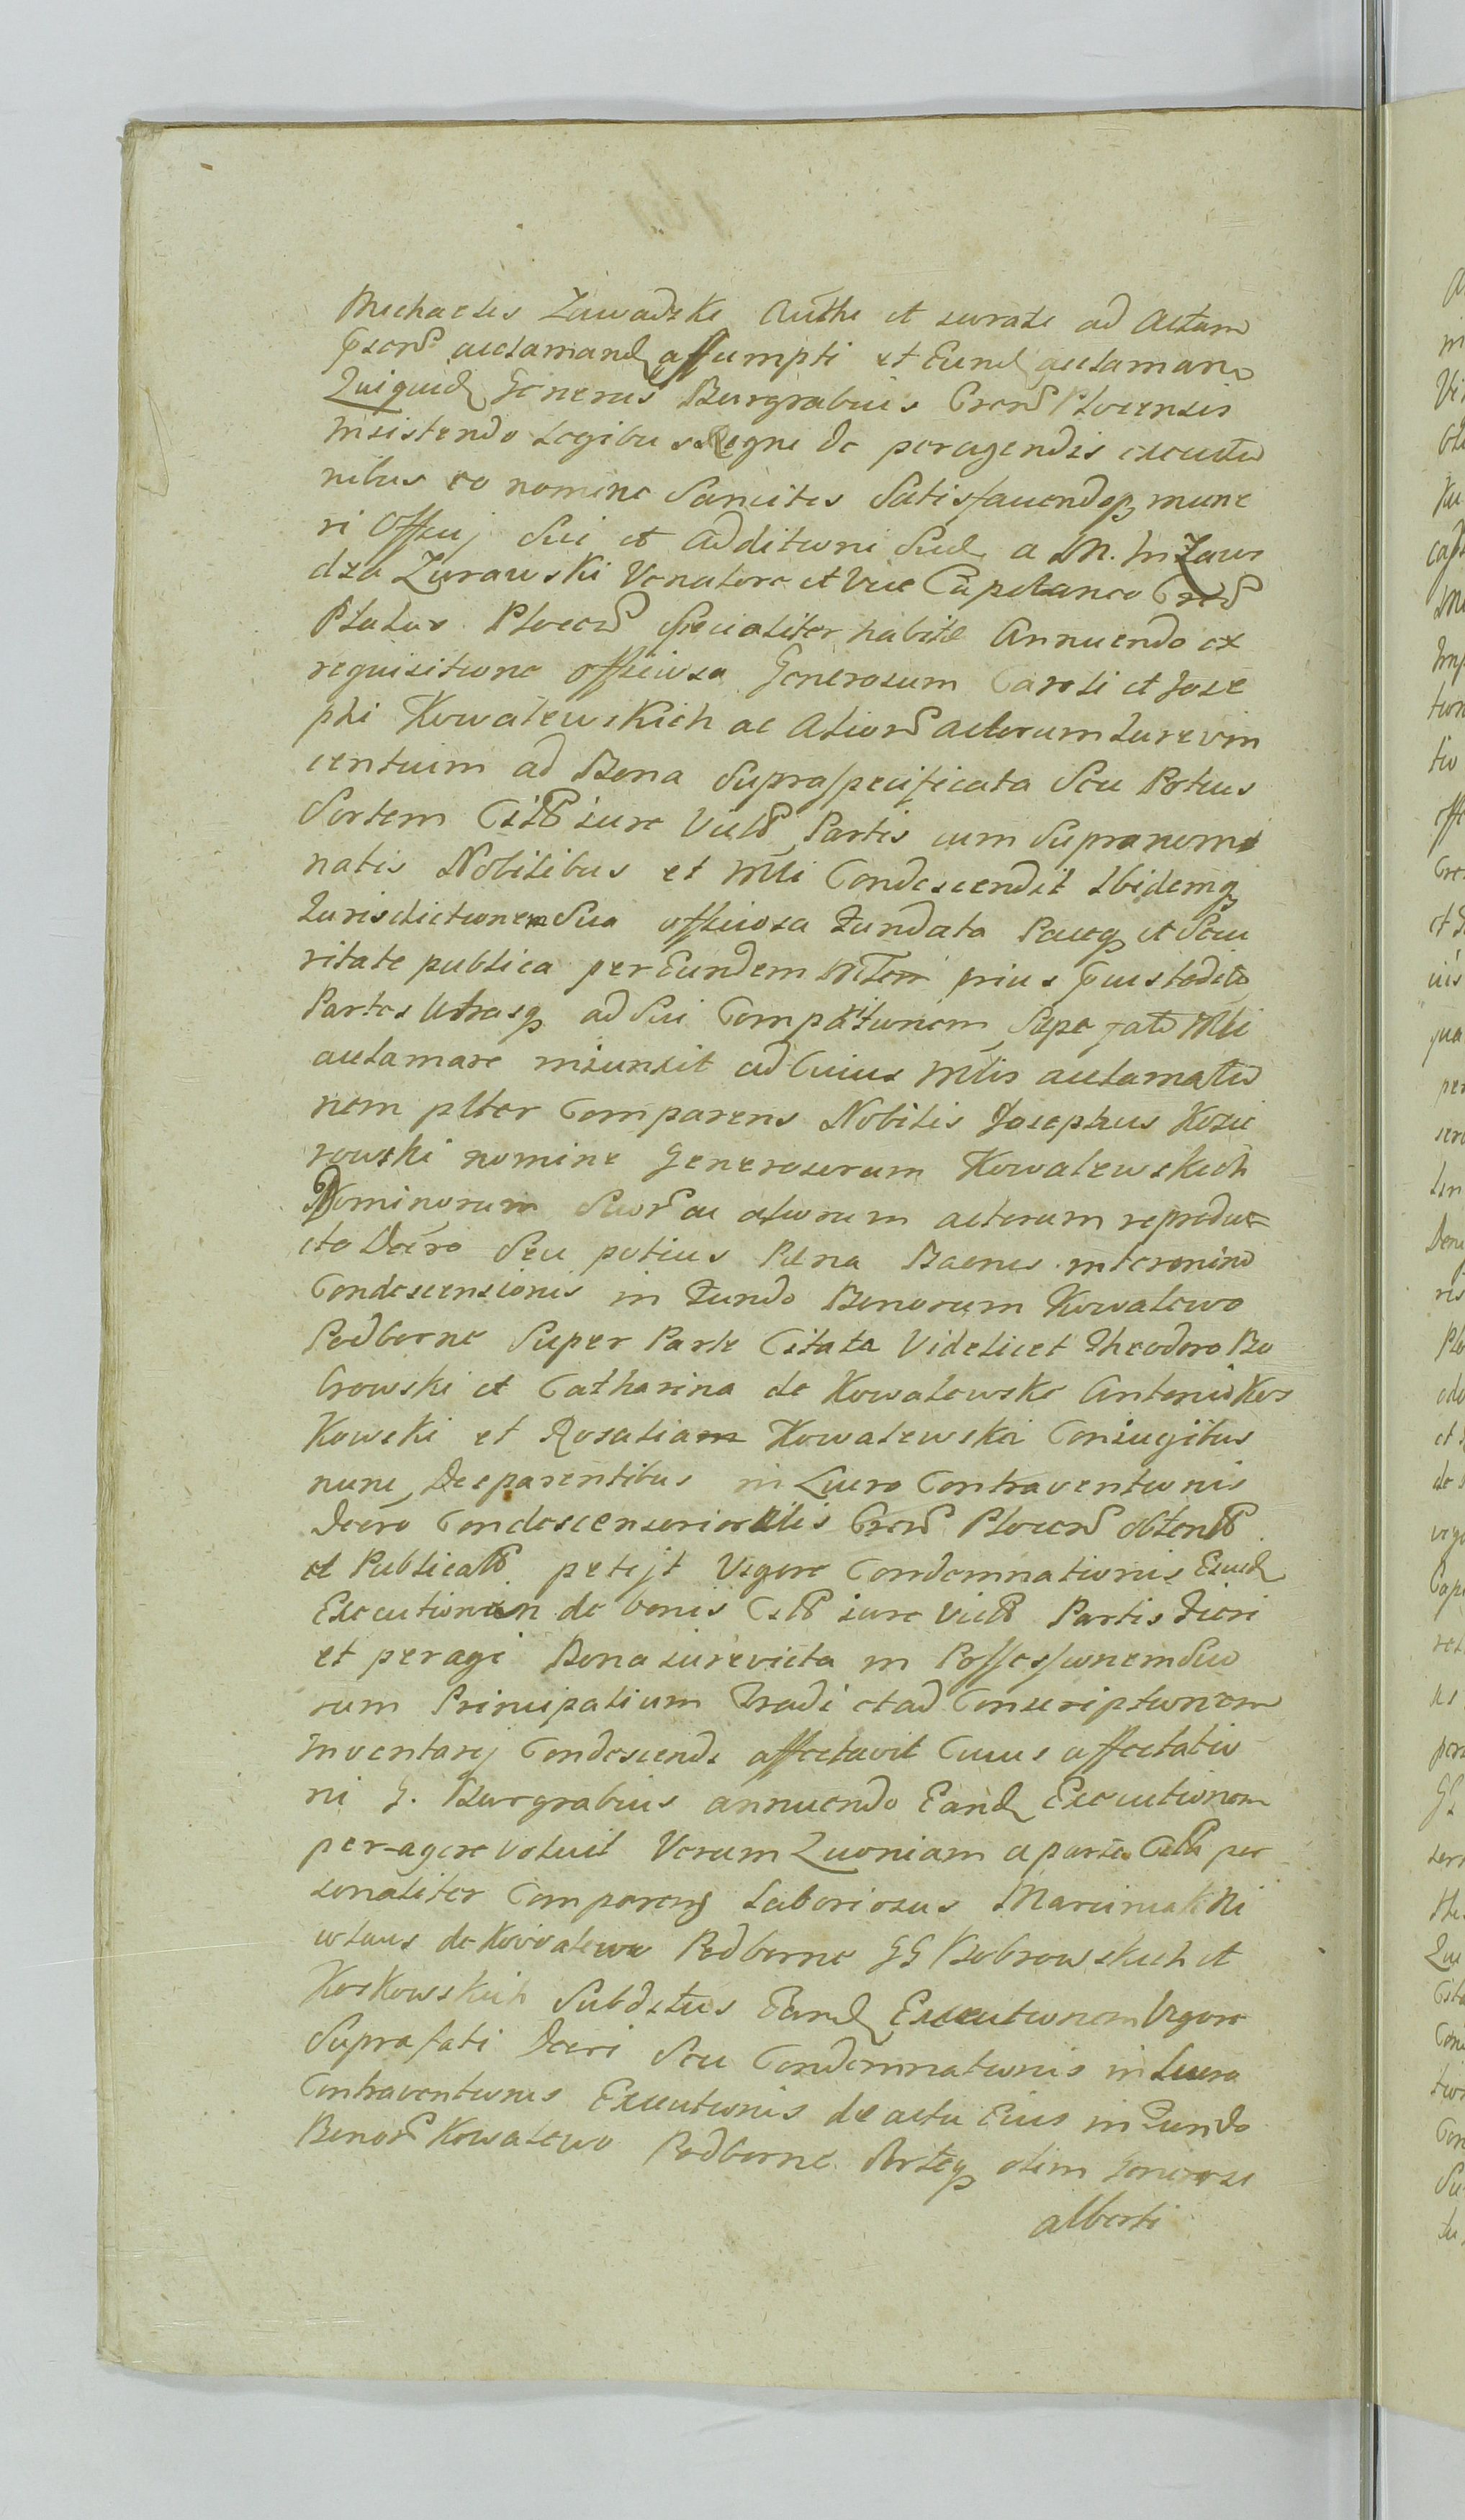 Michaelis Zawadzki Authi et iurati ad Actum
Pscns acclamand assumpti et Eund acclaman
Quiquid Generus Burgrabius Crcns Plocensis
Insistendo Legibus Regni de peragendis executio
nibus eo nomine Sancitis Satisfaciendoq mune
ri Officij Sui et additioni Sud a M. In Zawi
dza Zurawski Venatore et Vice Capitaneo Crcs
Platus Plocens specialiter habite Annuendo ex
requisitione officiosa Generosum Caroli et Jose
phi Kowalewskich ac Aliors actorum Iurevin
centium ad Bona Supraspecificata Seu Potius
Sortem Citt iure Vict Partis cum Supranomi
natis Nobilibus et Mli Condescendit Ibidemq
Iurisdictione Sua officiosa Fundata Paceq et Secu
ritate publica per Eundem Mlem prius Custodita
Partes Utrasq ad Sui Comparitionem Sepe fato Mli
acclamare iniunxit ad Cuius Mlis acclamatio
nem plter Comparens Nobilis Josephus Kozie
rowski nomine Generosorum Kowalewskich
Dominorum Suors ac aliorum actorum reproduc
cto Decro Seu potius Pæna Baenis interonino
Condescensionis in Fundo Bonorum Kowalewo
Podborne Super Parte Citata Videlicet Theodoro Bo
browski et Catharina de Kowalewske Antonio Kos
Kowski et Rosalia Kowalewska Coniugibus
nunc Deeparentibus in Lucro Contraventionis
Decro Condescensorioalis Crcns Plocens obtent
et Publicatt petijt Vigore Condemnationis Eiusd
Executionem de bonis Citt iure Victt Partis Fieri
et peragi Bona iurevicta in Possessionem Suo
rum Principalium Tradi et ad Conscriptionem
Inventarij Condescendi affectavit Cuius affectatio
ni G. Burgrabius annuendo Eand Executionem
per-agere voluit Verum Quoniam a parte Citta per
sonaliter Comparens Laboriosus Marciniak Ki
wlaus de Kowalewo Podborne GG Bobrowskich et
Koskowskich Subditus Eand Executionem Vigore
Suprafati Decri Seu Condemnationis in Lucro
Contraventionis Executionis de actu Eius in Fundo
Bonors Kowalewo Podborne Porteq olim Generosi
alberti